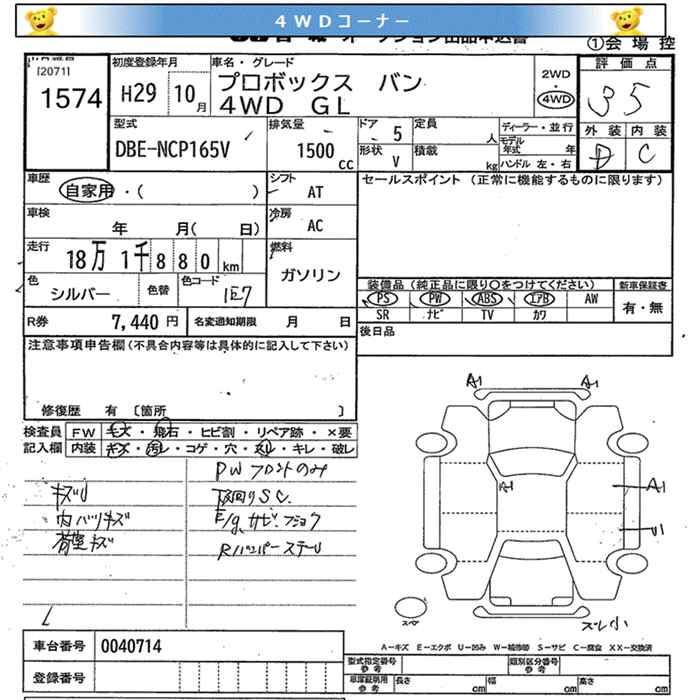 4WDコーナー
①会場控
[2071]
1574
初度登録年月
H29 10月
車名・グレード
プロボックス バン
4WD GL
2WD
・
4WD
評価点
35
外装 内装
D C
型式
DBE-NCP165V
排気量
1500 cc
ドア 5
定員 人
形状 V
積載 kg
ディーラー・並行
モデル年式 年
ハンドル 左・右
車歴
自家用・( )
シフト
AT
セールスポイント (正常に機能するものに限ります)
車検
年 月( 日)
冷房
AC
走行
18万 1千 880 km
燃料
ガソリン
色
シルバー
色替
色コード
1E7
装備品 (純正品に限り〇をつけてください)
PS PW ABS エアB AW
SR ナビ TV カワ
新車保証書
有・無
R券 7,440 円
名変通知期限 月 日
後日品
注意事項申告欄 (不具合内容等は具体的に記入して下さい)
修復歴 有 〔箇所 〕
検査員
記入欄
FW キズ・飛石・ヒビ割・リペア跡・×要
内装 キズ・汚レ・コゲ・穴・スレ・キレ・破レ
PWフロントのみ
キズU
下回りSC
内バリキズ
E/gサビ、フショク
荷室キズ
RバンパーステーU
A1 A1
A1
A1
U1
スペア
スレ小
A-キズ E-エクボ U-凹み W-補修跡 S-サビ C-腐食 XX-交換済
車台番号 0040714
登録番号
型式指定番号 参考
類別区分番号 参考
車庫証明用 参考
長さ cm 幅 cm 高さ cm